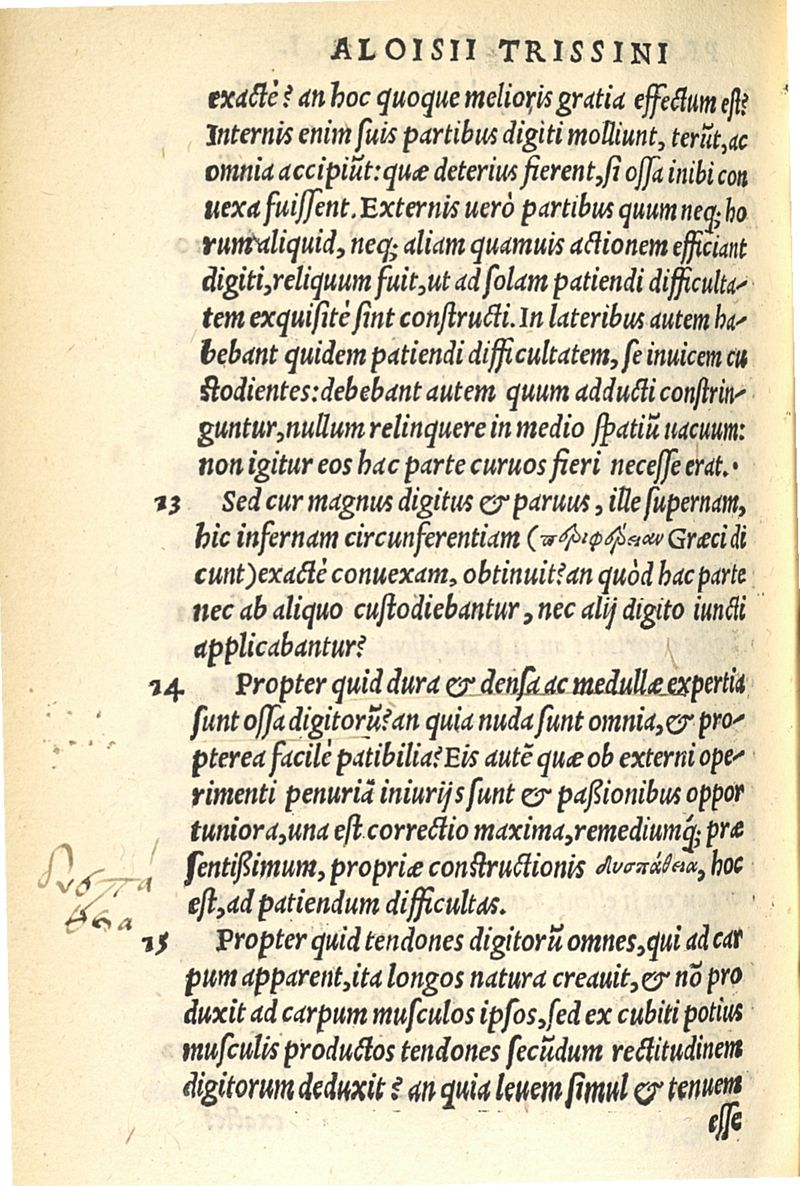 ALOISII TRISSINI
exactè? an hoc quoque melioris gratia effectum est?
Internis enim suis partibus digiti molliunt, terũt, ac
omnia accipiũt: quæ deterius fierent, si ossa inibi con
uexa fuissent. Externis uerò partibus quum neq; ho
rum aliquid, neq; aliam quamuis actionem efficiant
digiti, reliquum fuit, ut ad solam patiendi difficulta-
tem exquisitè sint constructi. In lateribus autem ha-
bebant quidem patiendi difficultatem, se inuicem cu
stodientes: debebant autem quum adducti constrin-
guntur, nullum relinquere in medio spatiũ uacuum:
non igitur eos hac parte curuos fieri necesse erat.
13 Sed cur magnus digitus & paruus, ille supernam,
hic infernam circunferentiam (περιφέρειαν Græci di
cunt) exactè conuexam, obtinuit? an quòd hac parte
nec ab aliquo custodiebantur, nec alij digito iuncti
applicabantur?
14 Propter quid dura & densa ac medullæ expertia
sunt ossa digitorũ? an quia nuda sunt omnia, & pro-
pterea facilè patibilia? Eis autẽ quæ ob externi ope-
rimenti penuriã iniurijs sunt & paßionibus oppor
tuniora, una est correctio maxima, remediumq́; præ
sentißimum, propriæ constructionis δυσπάθεια, hoc
est, ad patiendum difficultas.
δυσπά
θεια
15 Propter quid tendones digitorũ omnes, qui ad car
pum apparent, ita longos natura creauit, & nõ pro
duxit ad carpum musculos ipsos, sed ex cubiti potius
musculis productos tendones secũdum rectitudinem
digitorum deduxit? an quia leuem simul & tenuem
esse